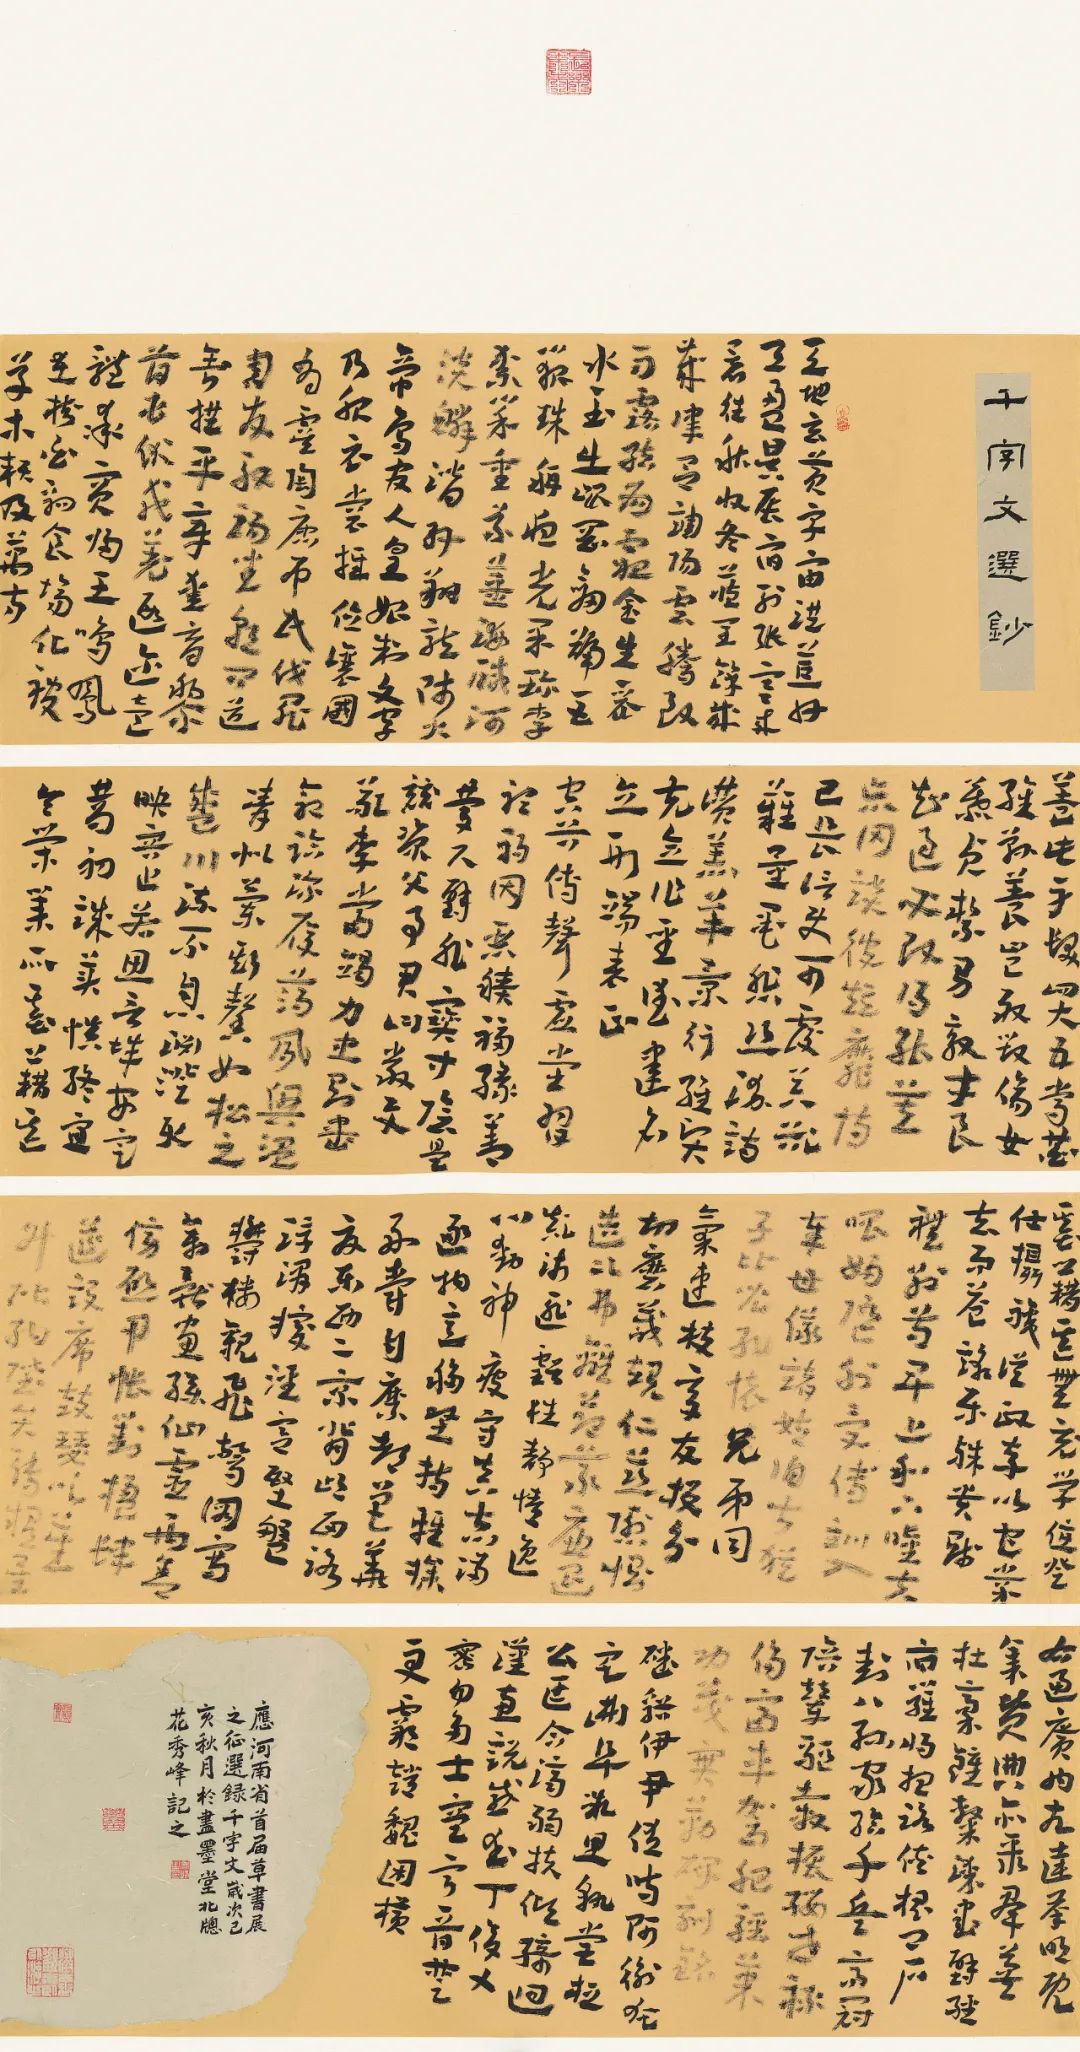 千字文選鈔
天地玄黄宇宙洪荒日
月盈昃辰宿列張寒来
暑往秋收冬藏閏餘成
歲律吕調陽雲騰致
雨露結為霜金生麗
水玉出崑岡劍號巨
闕珠稱夜光果珍李
柰菜重芥薑海鹹河
淡鱗潛羽翔龍師火
帝鳥官人皇始制文字
乃服衣裳推位讓國
有虞陶唐弔民伐罪
周發殷湯坐朝問道
垂拱平章愛育黎
首臣伏戎羌遐邇壹
體率賓歸王鳴鳳
在樹白駒食場化被
草木賴及萬方
蓋此身髮四大五常恭
惟鞠養豈敢毀傷女
慕貞絜男效才良
知過必改得能莫
忘罔談彼短靡恃
己長信使可覆器欲
難量墨悲絲染詩
讚羔羊景行維賢
克念作聖德建名
立形端表正
空谷傳聲虛堂習
聽禍因惡積福緣善
慶尺璧非寶寸陰是
競資父事君曰嚴與
敬孝當竭力忠則盡
命臨深履薄夙興溫
凊似蘭斯馨如松之
盛川流不息淵澄取
映容止若思言辭安定
篤初誠美慎終宜
令榮業所基籍甚
基籍甚無竟學優登
仕攝職從政存以甘棠
去而益詠樂殊貴賤
禮別尊卑上和下睦夫
唱婦隨外受傅訓入
奉母儀諸姑伯叔猶
子比兒孔懷兄弟同
氣連枝交友投分
切磨箴規仁慈隱惻
造次弗離節義廉退
顛沛匪虧性靜情逸
心動神疲守真志滿
逐物意移堅持雅操
好爵自縻都邑華
夏東西二京背邙面洛
浮渭據涇宮殿盤
鬱樓觀飛驚圖寫
禽獸畫綵仙靈丙舍
傍啟甲帳對楹肆
筵設席鼓瑟吹笙
升階納陛弁轉疑星
右通廣內左達承明既
集墳典亦聚群英
杜稾鍾隸漆書壁經
府羅將相路俠槐卿户
封八縣家給千兵高冠
陪輦驅轂振纓世祿
侈富車駕肥輕策
功茂實勒碑刻銘
磻谿伊尹佐時阿衡奄
宅曲阜微旦孰營桓
公匡合濟弱扶傾綺迴
漢惠說感武丁俊乂
密勿多士寔寧晉楚
更霸趙魏困橫
應河南省首届草書展
之征選録千字文歲次己
亥秋月於盡墨堂北牕
花秀峰記之